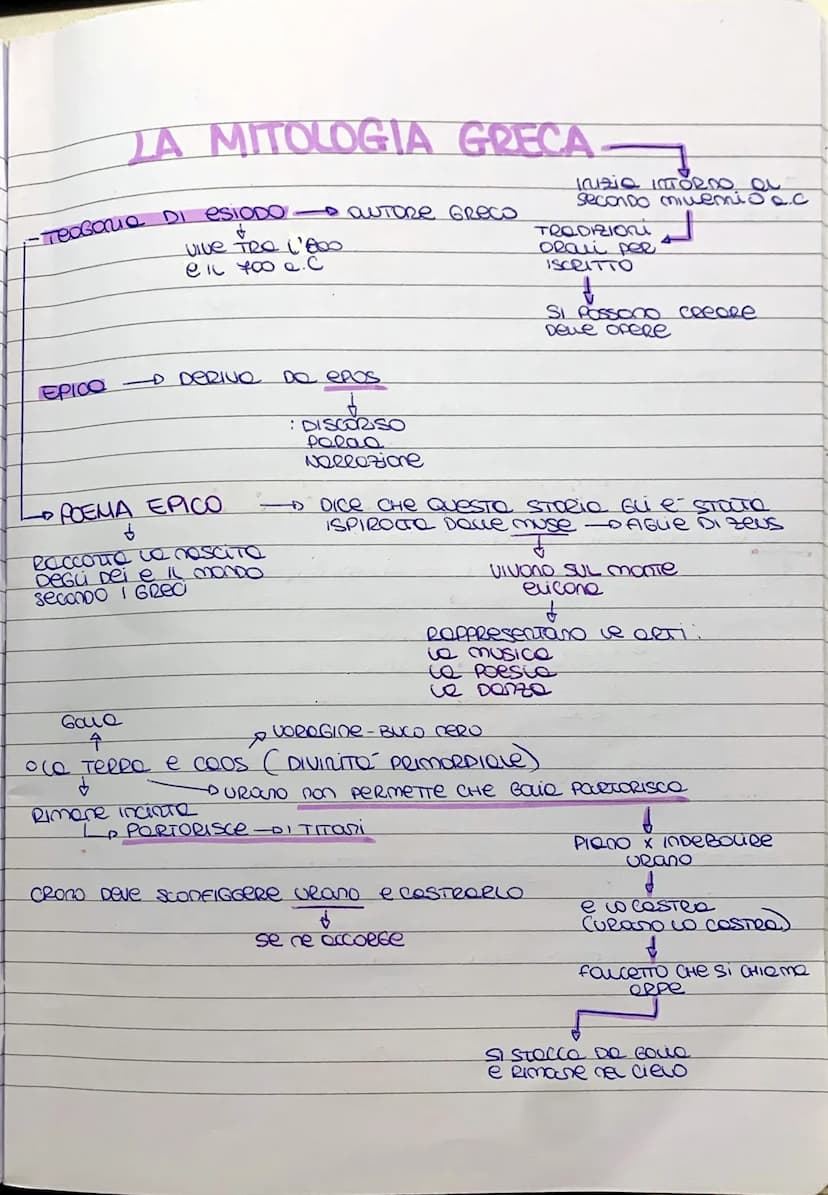 LA MITOLOGIA GRECA →
INIZIA INTORNO AL
SECONDO MILLENNIO a.C
TRADIZIONI
ORALI PER
ISCRITTO
SI POSSONO CREARE
DELLE OPERE
- TEOGONIA DI ESIODO → AUTORE GRECO
VIVE TRA L'800
E IL 700 a.C
EPICO → DERIVA DA EPOS
: DISCORSO
PAROLA
NARRAZIONE
→ POEMA EPICO → DICE CHE QUESTA STORIA GLI E' STATA
ISPIRATA DALLE MUSE → FIGLIE DI ZEUS
RACCONTA LA NASCITA
DEGLI DEI E IL MONDO
SECONDO I GRECI
VIVONO SUL MONTE
ELICONA
RAPPRESENTANO LE ARTI:
LA MUSICA
LA POESIA
LA DANZA
GAIA
VORAGINE - BUCO NERO
LA TERRA E CAOS (DIVINITA' PRIMORDIALE)
→ URANO NON PERMETTE CHE GAIA PARTORISCA
RIMANE INCINTA
→ PARTORISCE → I TITANI
PIANO X INDEBOLIRE
URANO
CRONO DEVE SCONFIGGERE URANO E CASTRARLO
SE NE ACCORGE
E LO CASTRA
(URANO LO CASTRA)
FALCETTO CHE SI CHIAMA
ARPE
SI STACCA DA GAIA
E RIMANE NEL CIELO